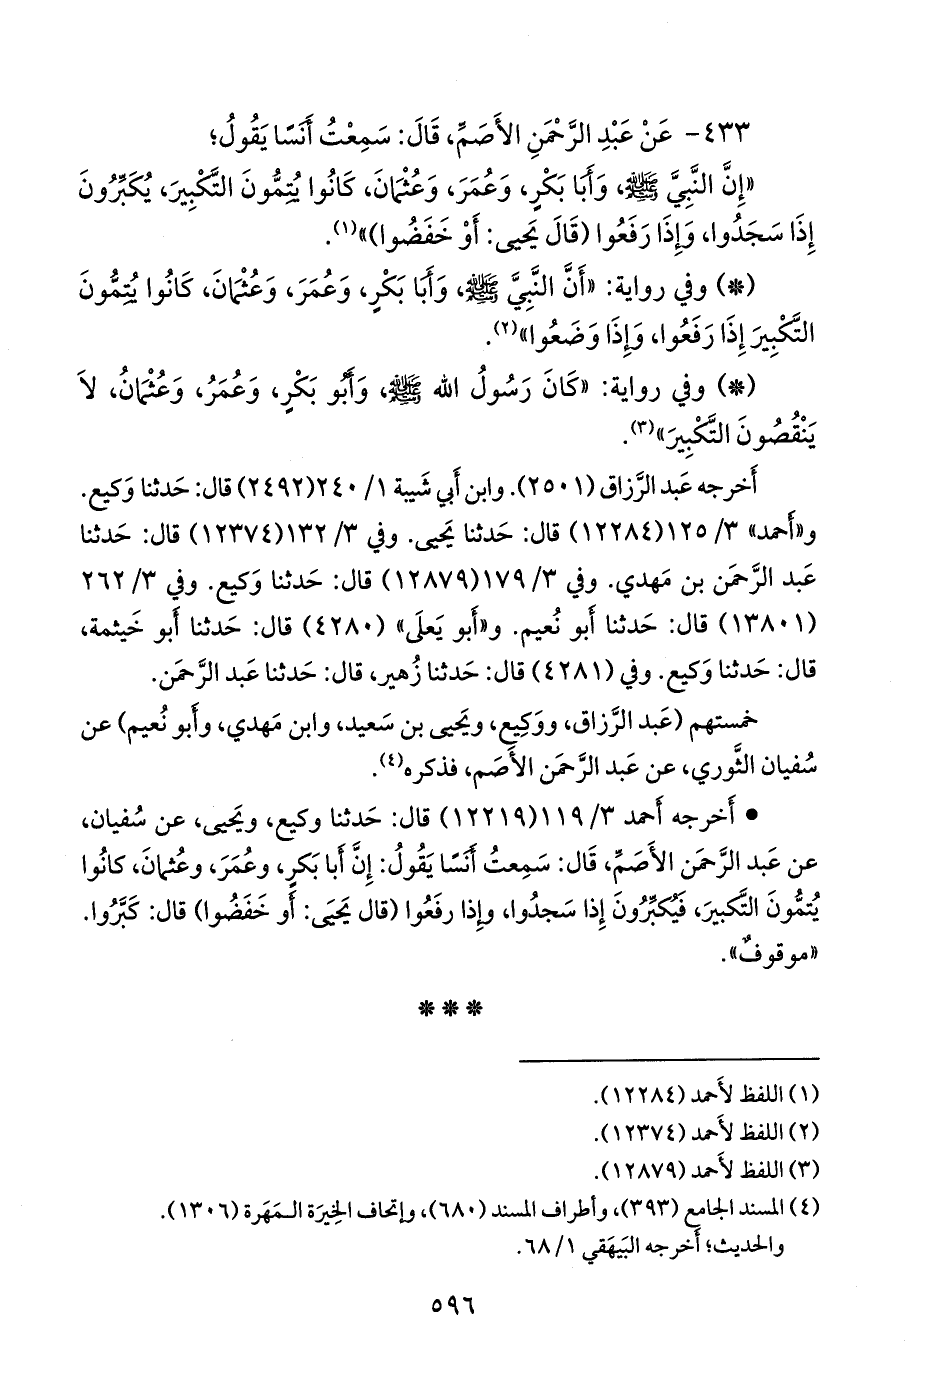 ٤٣٣- عَنْ عَبْدِ الرَّحْمَنِ الأَصَمِّ، قَالَ: سَمِعْتُ أَنَسًا يَقُولُ؛
«إِنَّ النَّبِيَّ ﷺ، وَأَبَا بَكْرٍ، وَعُمَرَ، وَعُثْمَانَ، كَانُوا يُتِمُّونَ التَّكْبِيرَ، يُكَبِّرُونَ
إِذَا سَجَدُوا، وَإِذَا رَفَعُوا (قَالَ يَحيى: أَوْ خَفَضُوا)»(١).
(*) وفي رواية: «أَنَّ النَّبِيَّ ﷺ، وَأَبَا بَكْرٍ، وَعُمَرَ، وَعُثْمَانَ، كَانُوا يُتِمُّونَ
التَّكْبِيرَ إِذَا رَفَعُوا، وَإِذَا وَضَعُوا»(٢).
(*) وفي رواية: «كَانَ رَسُولُ الله ﷺ، وَأَبُو بَكْرٍ، وَعُمَرُ، وَعُثْمَانُ، لاَ
يَنْقُصُونَ التَّكْبِيرَ»(٣).
أَخرجه عَبد الرَّزاق (٢٥٠١). وابن أَبي شَيبة ١/ ٢٤٠(٢٤٩٢) قال: حَدثنا وَكيع.
و«أَحمد» ٣/ ١٢٥(١٢٢٨٤) قال: حَدثنا يَحيى. وفي ٣/ ١٣٢(١٢٣٧٤) قال: حَدثنا
عَبد الرَّحمَن بن مَهدي. وفي ٣/ ١٧٩(١٢٨٧٩) قال: حَدثنا وَكيع. وفي ٣/ ٢٦٢
(١٣٨٠١) قال: حَدثنا أَبو نُعيم. و«أَبو يَعلَى» (٤٢٨٠) قال: حَدثنا أَبو خَيثمة،
قال: حَدثنا وَكيع. وفي (٤٢٨١) قال: حَدثنا زُهير، قال: حَدثنا عَبد الرَّحمَن.
خمستهم (عَبد الرَّزاق، ووَكِيع، ويَحيى بن سَعيد، وابن مَهدي، وأَبو نُعيم) عن
سُفيان الثَّوري، عن عَبد الرَّحمَن الأَصَم، فذكره(٤).
• أَخرجه أَحمد ٣/ ١١٩(١٢٢١٩) قال: حَدثنا وكيع، ويَحيى، عن سُفيان،
عن عَبد الرَّحمَن الأَصَمِّ، قَال: سَمِعتُ أَنَسًا يَقُولُ: إِنَّ أَبا بَكرٍ، وعُمَرَ، وعُثمانَ، كانُوا
يُتمُّونَ التَّكبيرَ، فَيُكبِّرُونَ إِذا سَجدُوا، وإِذا رفَعُوا (قال يَحيَى: أَو خَفَضُوا) قال: كَبَّرُوا.
«موقوفٌ».
* * *
(١) اللفظ لأَحمد (١٢٢٨٤).
(٢) اللفظ لأَحمد (١٢٣٧٤).
(٣) اللفظ لأَحمد (١٢٨٧٩).
(٤) المسند الجامع (٣٩٣)، وأطراف المسند (٦٨٠)، وإتحاف الخِيرَة الـمَهَرة (١٣٠٦).
والحديث؛ أَخرجه البَيهَقي ١/ ٦٨.
٥٩٦